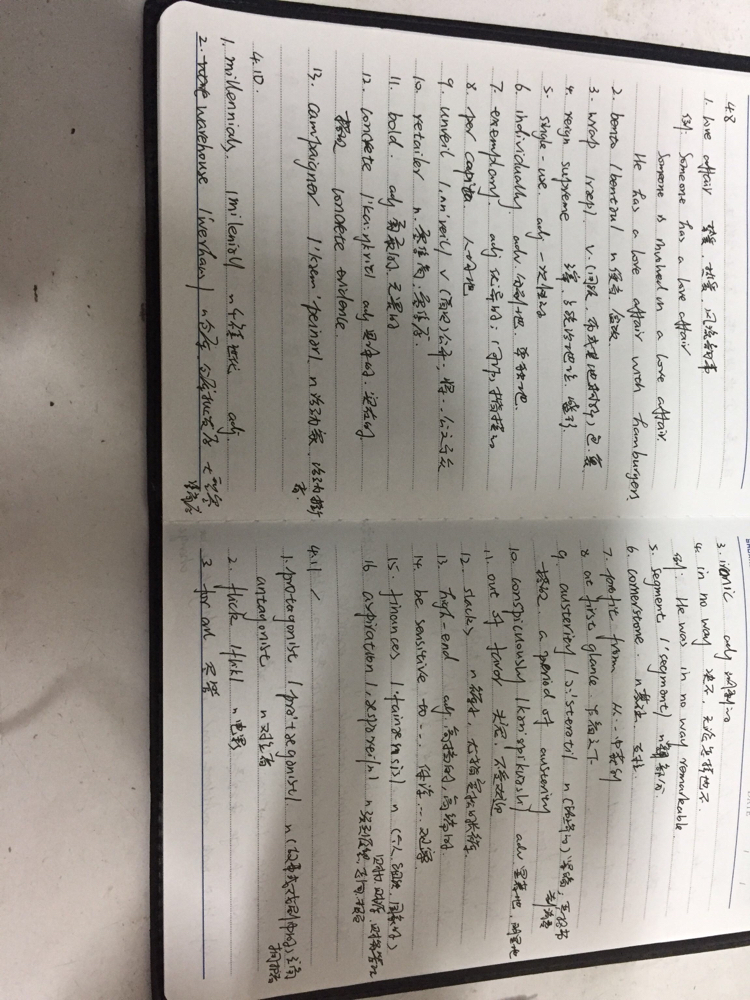 4.8
1. love affair 恋爱、热爱、风流韵事
eg. Someone has a love affair
Someone is involved in a love affair.
He has a love affair with hamburgers.
2. bento /bentəʊ/ n 便当、盒饭
3. wrap /ræp/ v. (用纸、布或其他材料) 包、裹
4. reign supreme 占统治地位、盛行
5. single-use adj 一次性的
6. individually adv. 分别地、单独地.
7. exemplary adj 典范的; 可作楷模的
8. per capita 人均地
9. unveil /ˌʌnˈveɪl/ v (首次)公开、将..公之于众
10. retailer n. 零售商、零售店.
11. bold. adj 勇敢的、无畏的
12. concrete /ˈkɒŋkriːt/ adj 具体的、实在的
搭配 concrete evidence
13. campaigner /kæmˈpeɪnə/ n 活动家、活动推行者.
4.10.
1. millennials. n 千禧世代 adj
2. warehouse n 仓库、仓储批发店
3. ironic adj 讽刺的
4. in no way 决不、无论怎样也不
eg. He was in no way remarkable.
5. segment /ˈsegmənt/ n 部分.
6. cornerstone. n 基础、基石.
7. profit from 从…中获利
8. at first glance 乍看之下
9. austerity /ɔːˈsterəti/ n (经济的) 紧缩;
搭配 a period of austerity
10. conspicuously /kənˈspɪkjuəsli/ adv 显著地、明显地
11. out of favor 失宠、不受欢迎
12. slacks n 裤子、尤指宽松的长裤.
13. high-end adj. 高档的、高端的.
14. be sensitive to... 对…敏感
15. finances /ˈfaɪnænsɪz/ n (个人、组织、国家的) 财力、财政、财务管理
16. aspiration /ˌæspəˈreɪʃn/ n
4.11
1. protagonist /prəˈtæɡənɪst/ n
antagonist n 对立者
2. flick /flɪk/ n 电影
3 for all 尽管